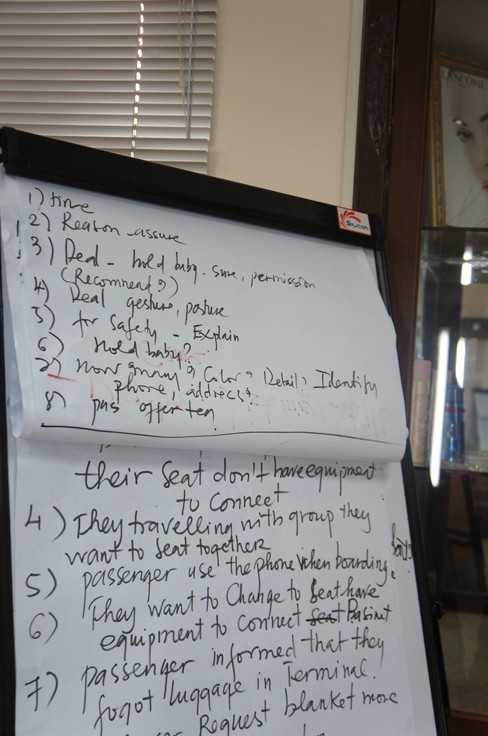 LANCOME
Silicon
1) time
2) Reason - assure
3) Deal - hold baby. sure, permission
(Recommend?)
4) Deal gesture, posture
5) for Safety - Explain
6) Hold baby?
7) How many? Color? Detail? Identify
phone, address?
8) offer tea
their Seat don't have equipment
to connect
4) They travelling with group they
want to Seat together
5) passenger use the phone when boarding.
6) They want to Change to Seat have
equipment to connect seat Basint
7) passenger informed that they
fogot luggage in Terminal.
Request blanket more